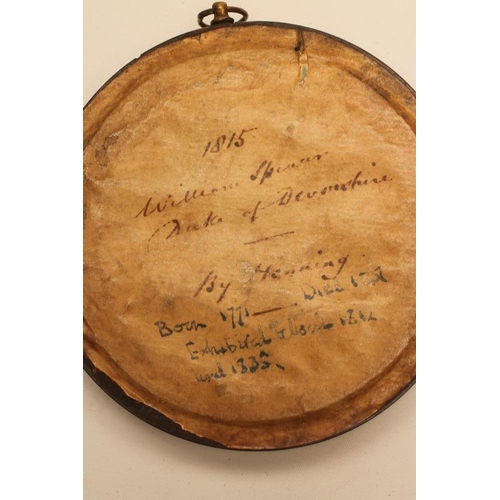 1815.
William Spencer
Duke of Devonshire
By Henning.
Born 1771 — Died
Exhibited 1812
until 1835.